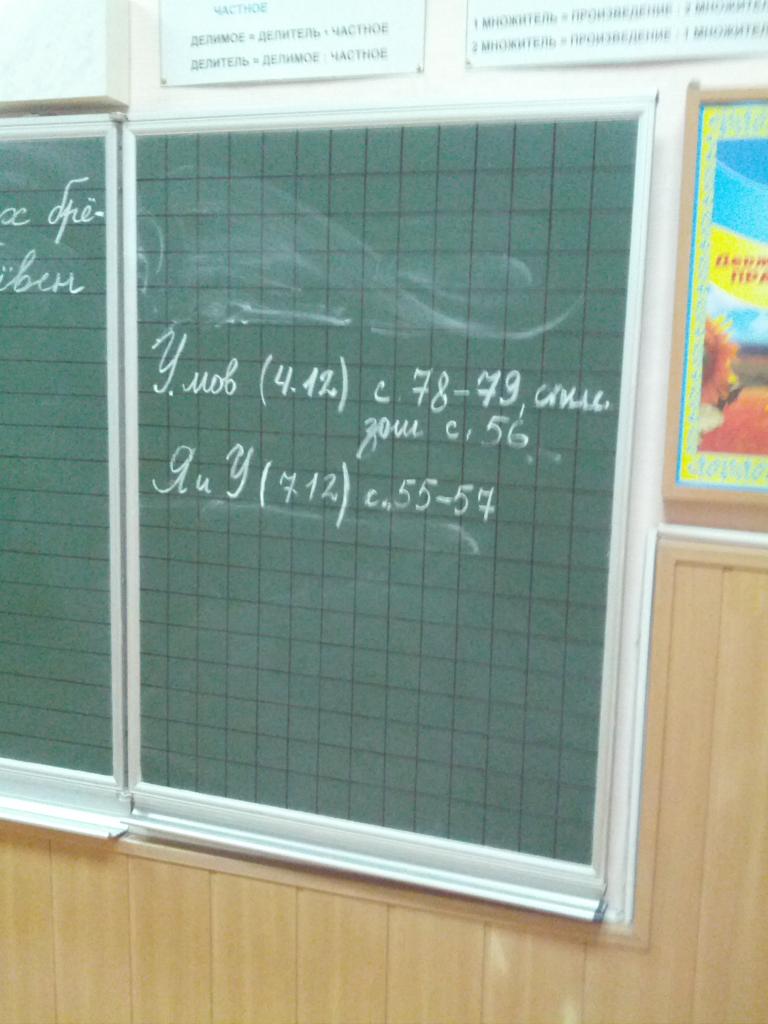 ЧАСТНОЕ
ДЕЛИМОЕ = ДЕЛИТЕЛЬ · ЧАСТНОЕ
ДЕЛИТЕЛЬ = ДЕЛИМОЕ : ЧАСТНОЕ
1 МНОЖИТЕЛЬ = ПРОИЗВЕДЕНИЕ : 2 МНОЖИТЕЛ
2 МНОЖИТЕЛЬ = ПРОИЗВЕДЕНИЕ : 1 МНОЖИТЕЛ
х брё-
вен
У. мов (4.12) с. 78-79,
зош с. 56
Я и У (7.12) с. 55-57